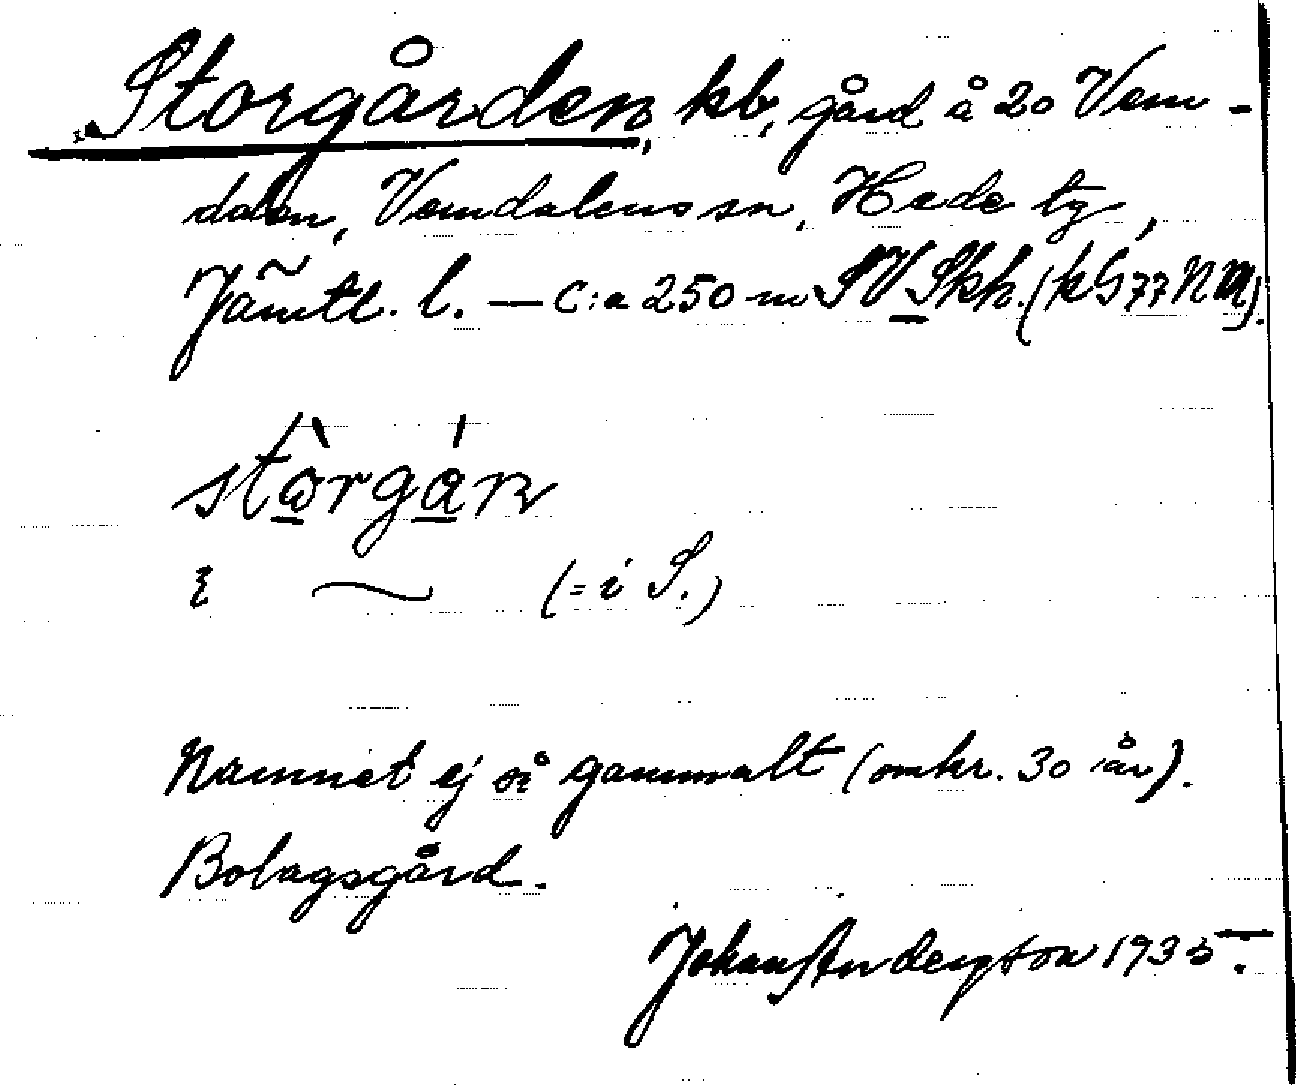 Storgården, kb, gård å 20 Vem-
dalen, Vemdalens sn, Hede tg,
Jämtl. l. — C:a 250 m SV Skh. (kG77NM).
stòrgán
(= i S.)
Namnet ej så gammalt (omkr. 30 år).
Bolagsgård.
Johan Andersson 1935.